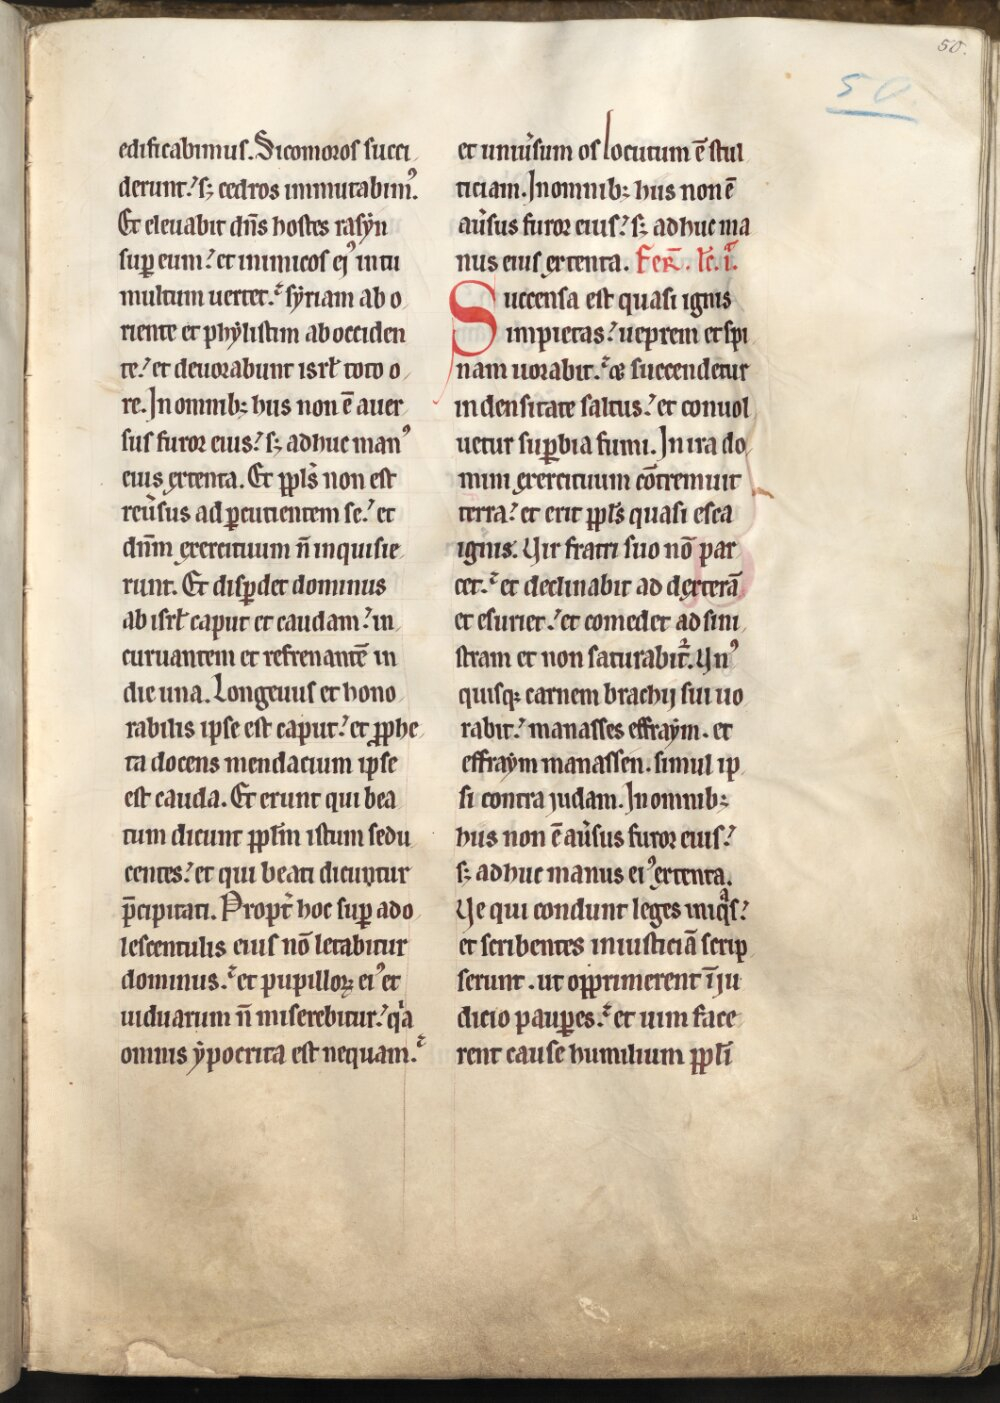 50.
50.
edificabimus. Sicomoros succi
derunt.' sꝫ cedros immutabimꝰ.
Et eleuabit dn̄s hostes rasẏn
suꝑ eum.' et inimicos eiꝰ in tu
multum uertet.' sẏriam ab o
riente et phẏlistim ab occiden
te.' et deuorabunt isrł toto o
re. In omnibꝫ hus non ē auer
sus furor eius.' sꝫ adhuc manꝰ
eius extenta. Et ppl̄s non est
reu̓sus ad ꝑcutientem se.' et
dn̄m exercituum n̄ inquisie
runt. Et disꝑdet dominus
ab isrł caput et caudam.' in
curuantem et refrenantē in
die una. Longeuus et hono
rabilis ipse est caput.' et ꝓphe
ta docens mendacium ipse
est cauda. Et erunt qui bea
tum dicunt ppl̄m istum sedu
centes.' et qui beati dicuntur
p̄cipitati. Propt̓ hoc suꝑ ado
lescentulis eius nō letabitur
dominus.' et pupilloꝝ eiꝰ et
uiduarum n̄ miserebitur.' qͣa
omnis ẏpocrita est nequam.'
et uniu̓sum os locutum ē stul
ticiam. In omnibꝫ hus non ē
au̓sus furor eius.' sꝫ adhuc ma
nus eius extenta. Fer̄. łc. i.
Succensa est quasi ignis
impietas.' ueprem et spi
nam uorabit.' & succendetur
in densitate saltus.' et conuol
uetur suꝑbia fumi. In ira do
mini exercituum cōtremuit
terra.' et erit ppl̄s quasi esca
ignis. Uir fratri suo nō par
cet.' et declinabit ad dexterā
et esuriet.' et comedet ad sini
stram et non saturabit᷑. Unꝰ
quisqꝫ carnem brachij sui uo
rabit.' manasses effraẏm. et
effraẏm manassen. simul ip
si contra iudam. In omnibꝫ
hus non ē au̓sus furor eius.'
sꝫ adhuc manus eiꝰ extenta.
Ue qui condunt leges iniqͣs.'
et scribentes iniusticiā scrip
serunt. ut opprimerent ī ju
dicio pauꝑes.' et uim face
rent cause humilium ppl̄i